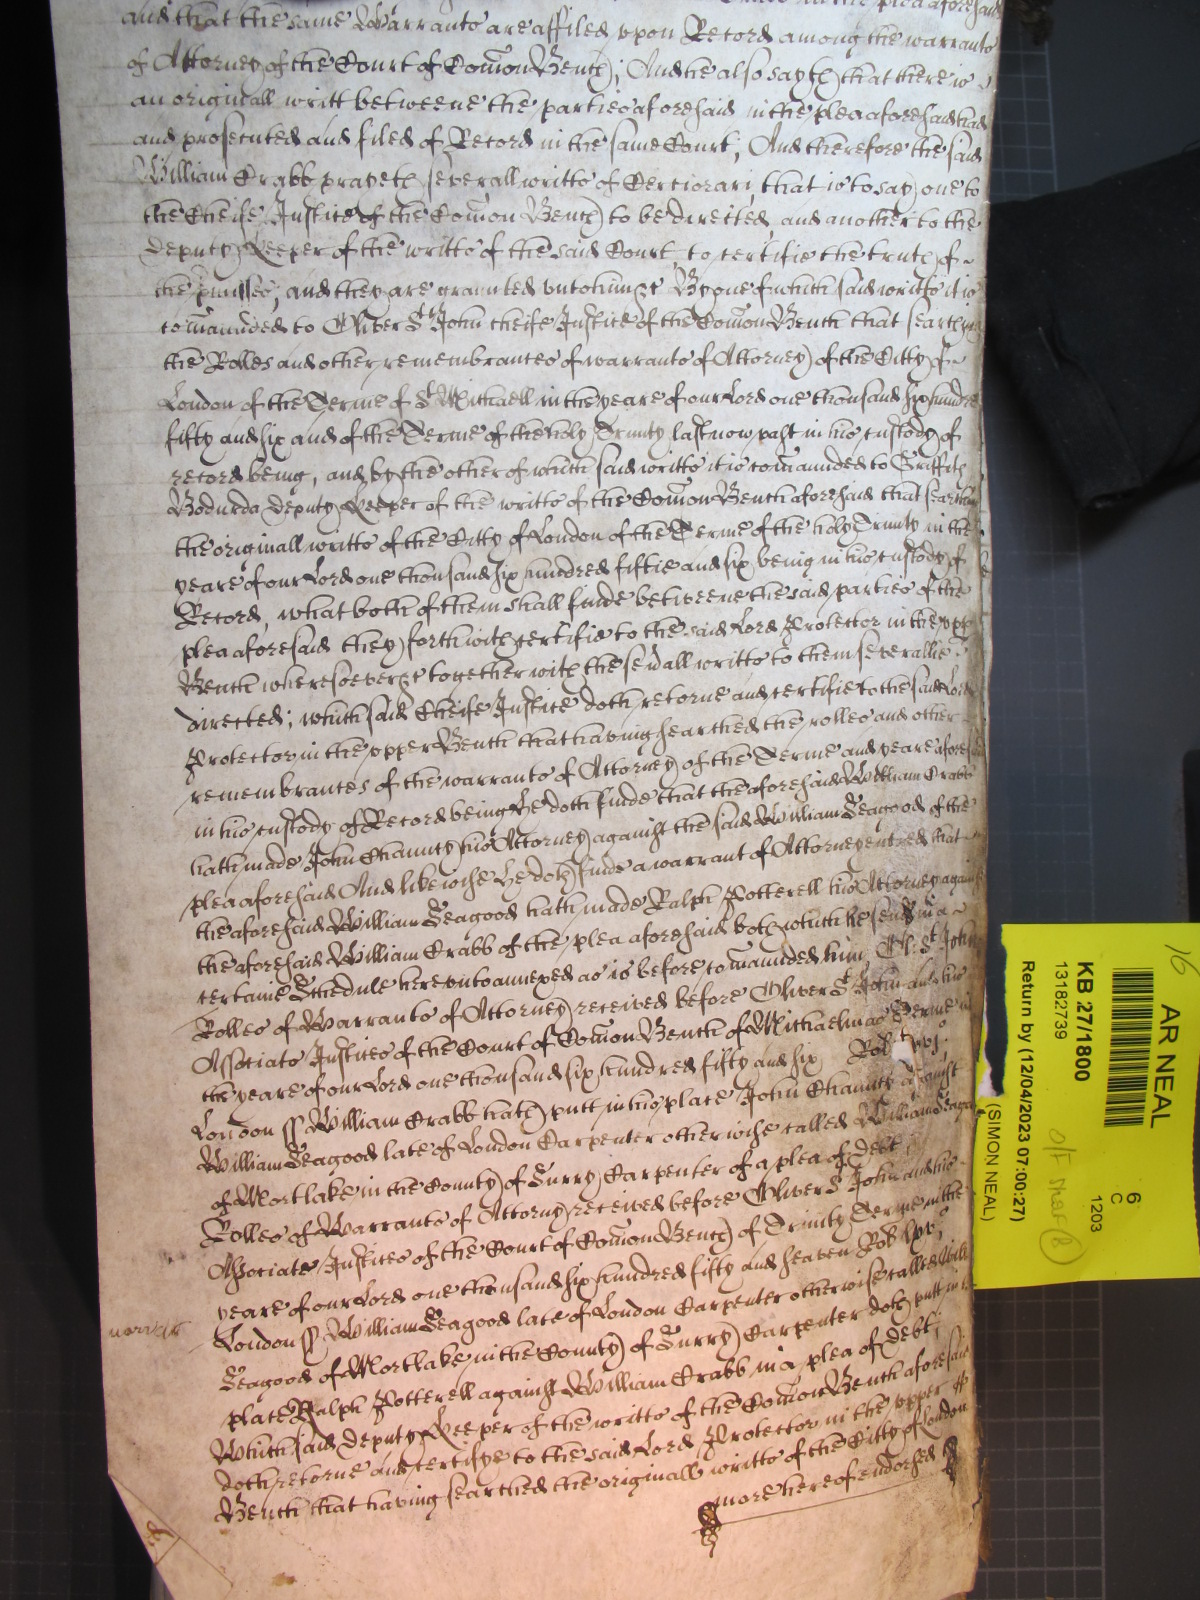 in the plea aforesaid
and that the same Warrants are affiled upon Record among the warrants
of Attorney of the Court of Com̄on Bench; And he also sayth that there is
an originall writt betweene the parties aforesaid in the plea aforesaid had
and prosecuted and filed of Record in the same Court, And therefore the said
William Crabb prayeth severall writts of Cerciorari, that is to say one to
the Cheife Justice of the Com̄on Bench to be directed, and another to the
deputy Keeper of the writts of the said Court, to certifie the truth of
the p̄misses, and they are graunted unto him &c By one of which said writts it is
com̄aunded to Oliver St John cheife Justice of the Com̄on Bench that searching
the Rolles and other remembrances of warrants of Attorney of the Citty of
London of the Terme of St Michaell in the yeare of our Lord one thousand six hundred
fifty and six and of the Terme of the holy Trinity last now past in his custody of
record being, and by the other of which said writts it is com̄aunded to Griffith
Bodurda deputy Keeper of the writts of the Com̄on Bench aforesaid that searching
the originall writts of the Citty of London of the Terme of the holy Trinity in the
yeare of our Lord one thousand six hundred fiftie and six being in his custody of
Record, what both of them shall finde betweene the said parties of the
plea aforesaid they forthwith certifie to the said Lord Protector in the upp
Bench wheresoever &c together with the sev̄all writts to them severallie
directed; which said Cheife Justice doth retorne and certifie to the said Lord
Protector in the upper Bench that having searched the rolles and other
remembrances of the warrants of Attorney of the Terme and yeare aforesaid
in his custody of Record being He doth finde that the aforesaid William Crabb
hath made John Chauncy his Attorney against the said William Seagood of the
plea aforesaid And likewise he doth finde a warrant of Attorney entred that
the aforesaid William Seagood hath made Ralph Potterell his Attorney against
the aforesaid William Crabb of the plea aforesaid both which he sends in a
certaine Schedule hereunto annexed as is before com̄aunded him, Ol: St John
Rolles of Warrants of Attorney received before Oliver St John and his
Associats Justices of the Court of Com̄on Bench of Michaelmas Terme in
the yeare of our Lord one thousand six hundred fifty and six Ro
London ss William Crabb hath putt in his place John Chauncy against
William Seagood late of London Carpenter otherwise called William Seagood
of Mortlake in the County of Surry Carpenter of a plea of debt
Rolles of Warrants of Attorny received before Oliver St John and his
Associats Justices of the Court of Com̄on Bench of Trinity Terme in the
yeare of our Lord one thousand six hundred fifty and seaven Ro
London ss William Seagood late of London Carpenter otherwise called Will
Seagood of Mortlake in the County of Surry Carpenter doth putt in
place Ralph Potterell against William Crabb in a plea of debt;
Which said deputy Keeper of the writts of the Com̄on Bench aforesaid
doth retorne and certifye to the said Lord Protector in the upper
Bench that having searched the originall writts of the Citty of London
more hereof endorsed
16
AR NEAL
6
C
1203
KB 27/1800
13182739
Return by (12/04/2023 07:00:27)
(SIMON NEAL)